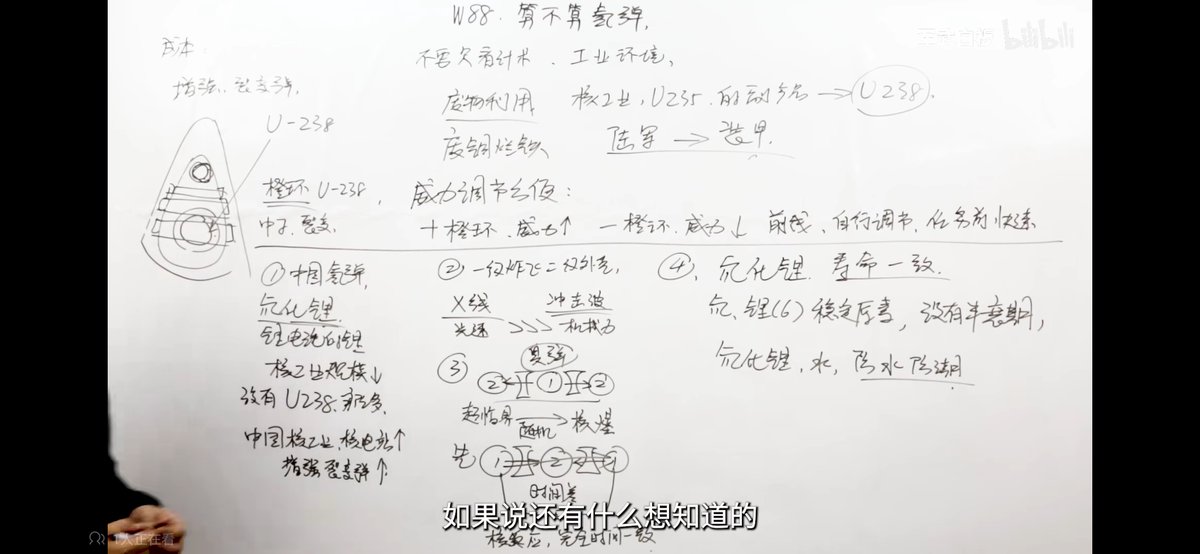 W88. 算不算氢弹,
成本:
不要欠着计术、工业环境,
增强.裂变弹.
废物利用 核工业,U235.的副产品→U238.
U-238
废铜烂铁 陆军→装甲.
橙环 U-238, 威力调节方便:
中子.裂变. +橙环.威力↑ 一橙环.威力↓ 前线、自行调节、任务前快速
①中国氢弹,
氘化锂.
锂电池的锂
核工业规模↓
没有U238.那么多.
中国核工业、核电站↑
增强裂变弹↑
②,一级炸飞二级外壳,
X线 冲击波
光速 >>> 机械力
③
②①②
超临界 随机→核爆
先 ①②①
时间差
核反应,完全时间一致.
④,氘化锂.寿命一致.
氘、锂(6)稳定元素,没有半衰期,
氘化锂.水,防水防潮.
如果说还有什么想知道的
bilibili
1人正在看